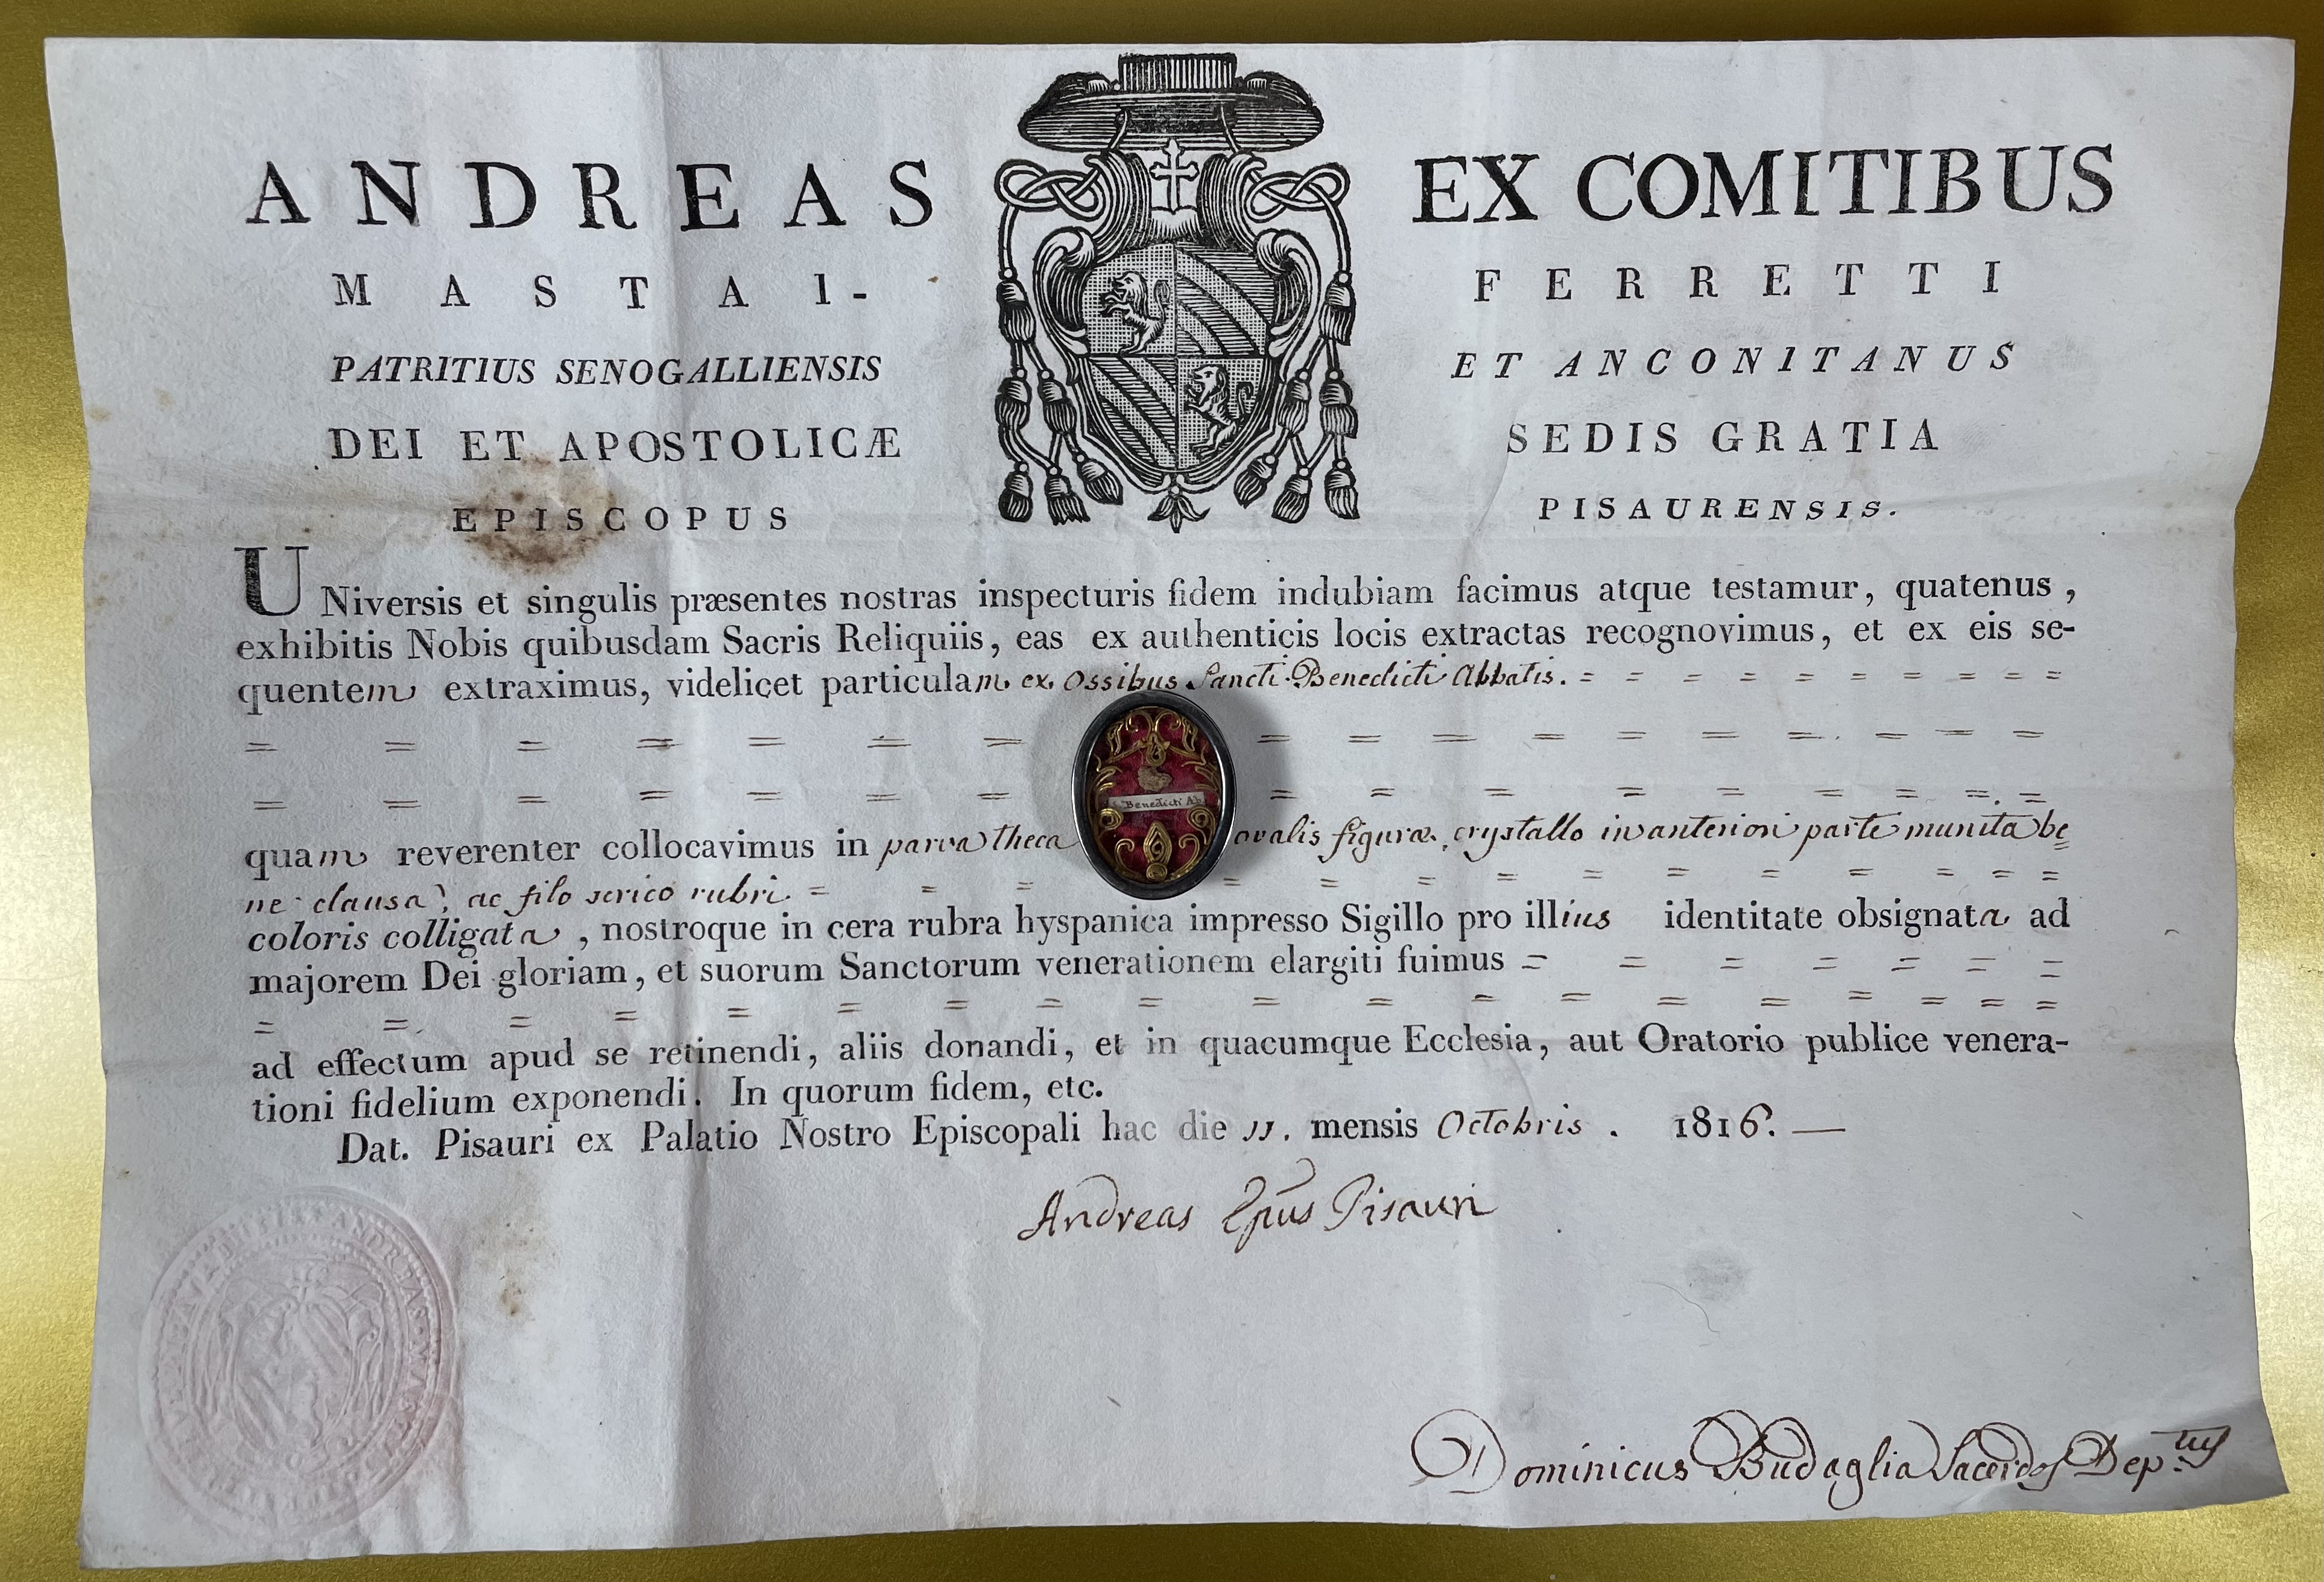 ANDREAS EX COMITIBUS
MASTAI- FERRETTI
PATRITIUS SENOGALLIENSIS ET ANCONITANUS
DEI ET APOSTOLICÆ SEDIS GRATIA
EPISCOPUS PISAURENSIS.
UNiversis et singulis præsentes nostras inspecturis fidem indubiam facimus atque testamur, quatenus,
exhibitis Nobis quibusdam Sacris Reliquiis, eas ex authenticis locis extractas recognovimus, et ex eis se-
quentem extraximus, videlicet particulam ex Ossibus Sancti Benedicti Abbatis. = = = = = = = = =
= = = = = = = = = = = = = = = = =
Benedicti Ab
= = = = = = = = = = = = = = =
quam reverenter collocavimus in parva theca ovalis figuræ, crystallo in anteriori parte munita be=
ne clausa, ac filo serico rubri = = = = = = = = = = = = =
coloris colligata, nostroque in cera rubra hyspanica impresso Sigillo pro illius identitate obsignata ad
majorem Dei gloriam, et suorum Sanctorum venerationem elargiti fuimus = = = = = = =
= = = = = = = = = = = = = = = = = =
ad effectum apud se retinendi, aliis donandi, et in quacumque Ecclesia, aut Oratorio publice venera-
tioni fidelium exponendi. In quorum fidem, etc.
Dat. Pisauri ex Palatio Nostro Episcopali hac die 11. mensis Octobris. 1816. —
Andreas Epus Pisauri
ANDREAS
Dominicus Budaglia Sacerdos Dep.tus